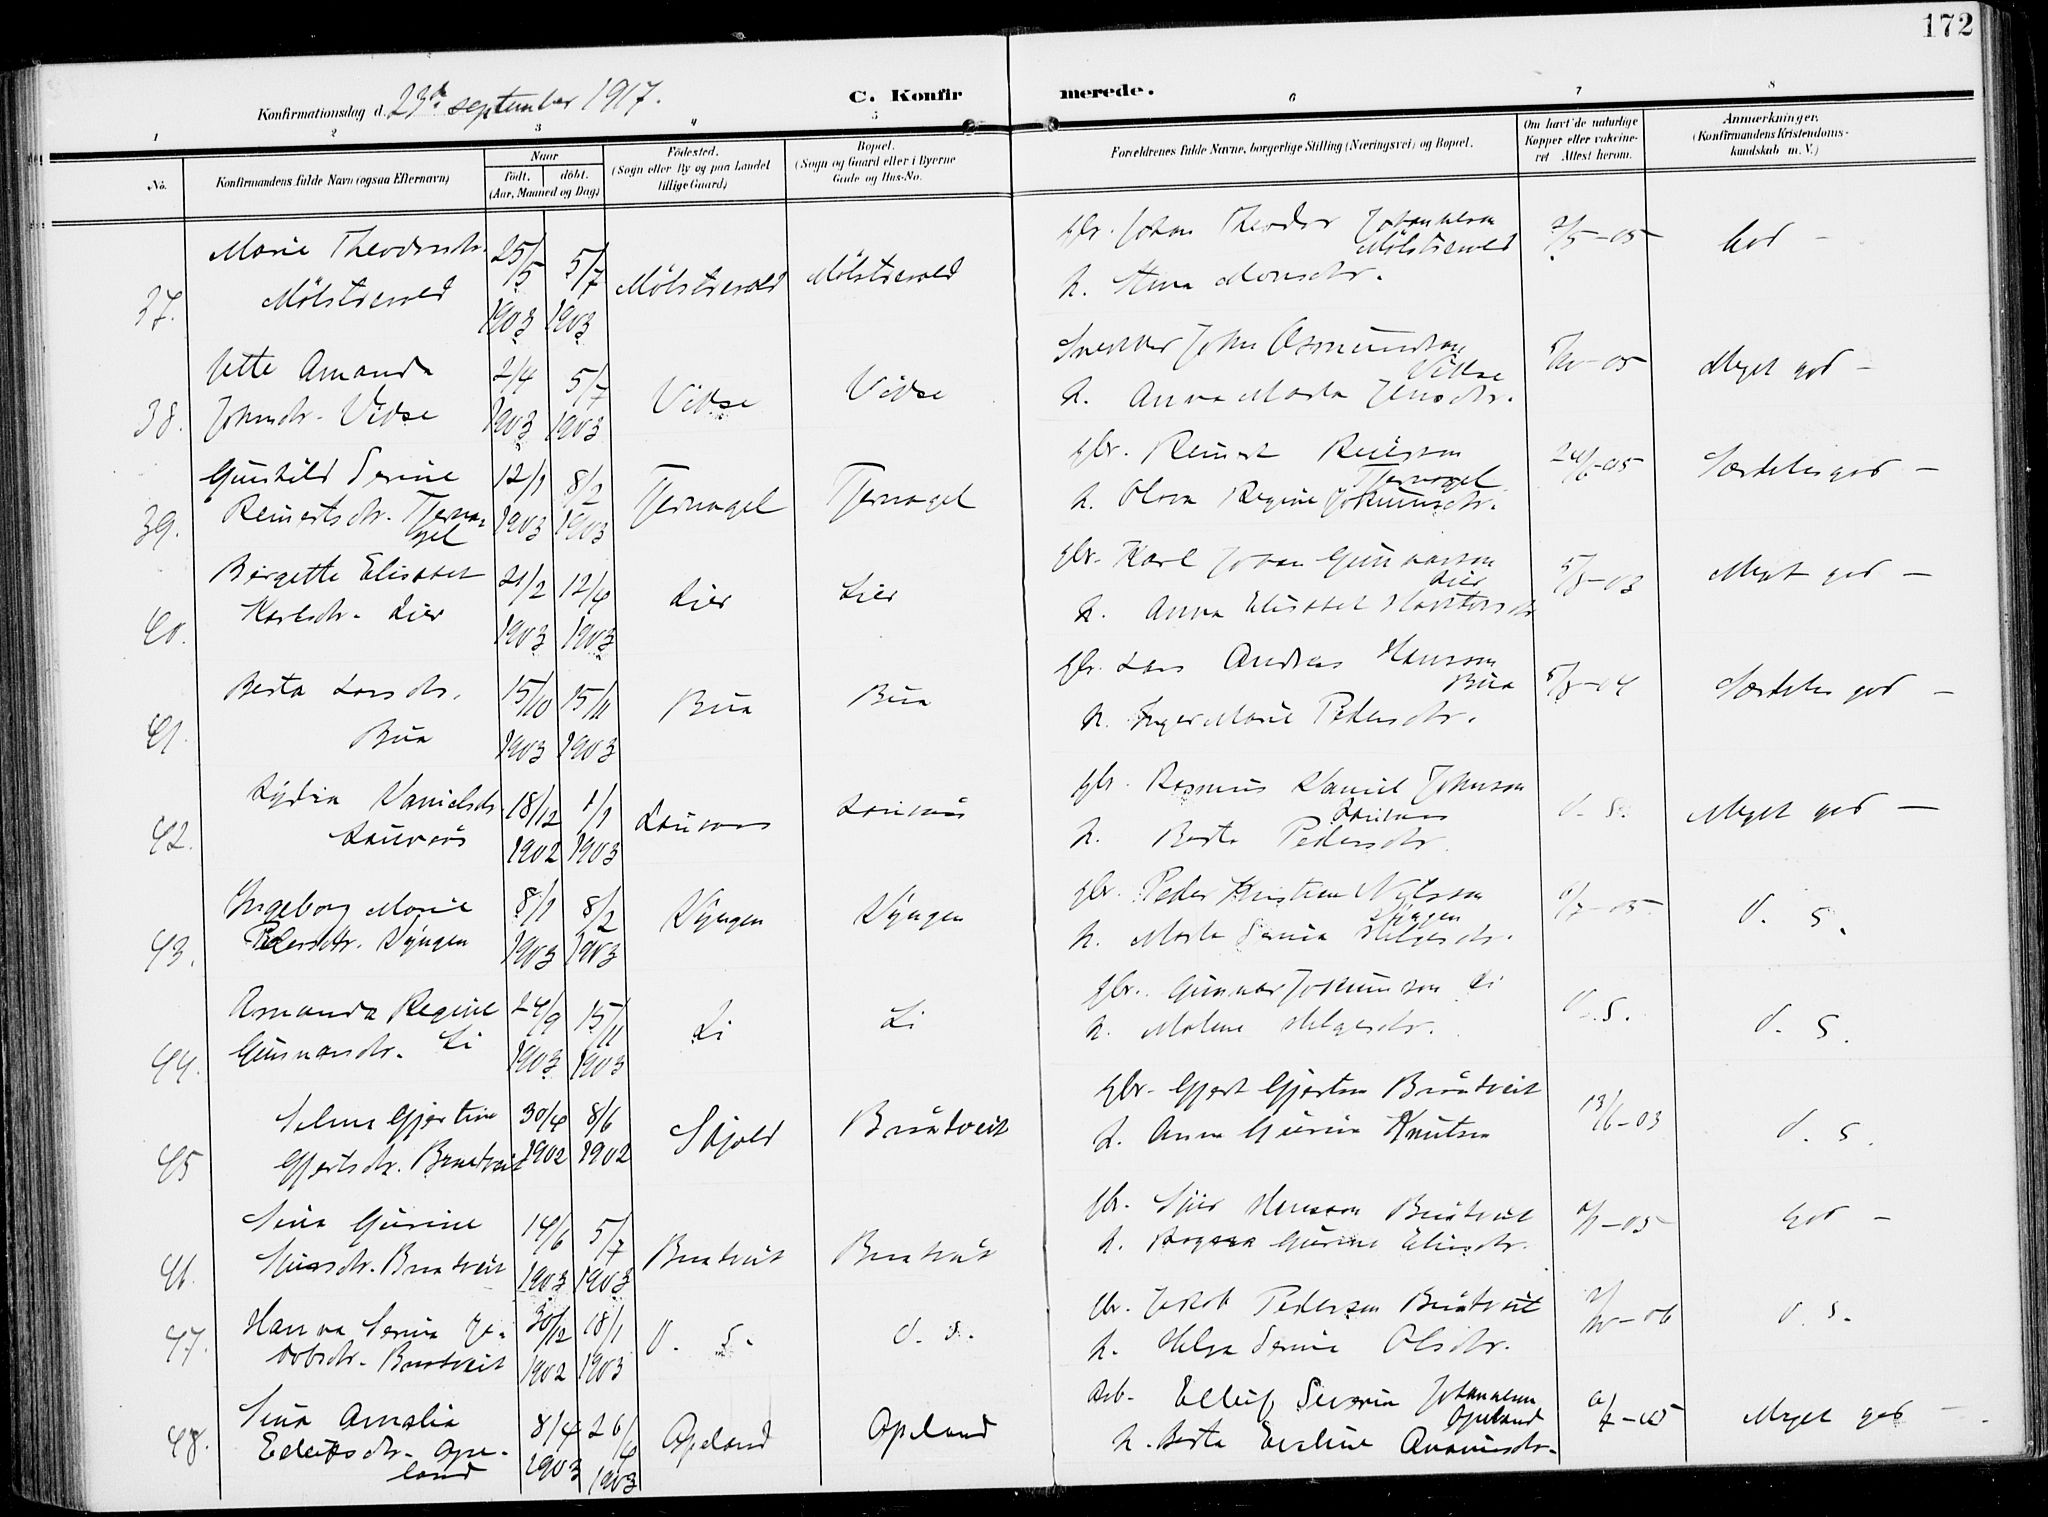 172
Konfirmationsdag d. 23de september 1917.
C. Konfirmerede.
1 2 3 4 5 6 7 8
No.
Konfirmandens fulde Navn (ogsaa Efternavn)
Naar
født. døbt.
(Aar, Maaned og Dag)
Fødested.
(Sogn eller By og paa Landet
tillige Gaard)
Bopæl.
(Sogn og Gaard eller i Byerne
Gade og Hus-No.
Forældrenes fulde Navne, borgerlige Stilling (Næringsvei) og Bopæl.
Om havt de naturlige
Kopper eller vakcine-
ret Attest herom.
Anmærkninger.
(Konfirmandens Kristendoms-
kundskab m. V.)
37. Marie Theodorsdtr. Mölstrevold 25/5 1903 5/7 1903 Mölstrevold Mölstrevold
gbr. Johan Theodor Johannesen Mölstrevold
h. Stina Monsdtr. /5-05 God -
38. Jette Amanda Johnsdr. Vidse 2/4 1903 5/7 1903 Vidse Vidse
Snekker John Osmundsen Vidse
h. Anna Marta Jensdtr. /10-05 Meget god -
39. Gunhild Serine Reinertsdtr. Tjernagel 12/1 1903 8/2 1903 Tjernagel Tjernagel
gbr. Reinert Tjernagel
h. Olava Regine Jokumsdtr. 24/6-05 Særdeles god -
40. Birgette Elisabet Karlsdr. Lier 21/2 1903 12/4 1903 Lier Lier
gbr. Karl Johan Gunnarson Lier
h. Anna Elisabet 5/8-03 Meget god -
41. Berta Larsdtr. Bua 15/10 1903 15/11 1903 Bua Bua
gbr. Lars Andreas Hansson Bua
h. Inger Marie Pedersdtr. 5/8-04 Særdeles god -
42. Lydia Danielsdtr. Lauvaas 18/12 1902 1/1 1903 Lauvaas Lauvaas
gbr. Rasmus Daniel Johnson Lauvaas
h. Berta Pedersdtr. d. s. Meget god -
43. Ingeborg Marie Pedersdtr. Dyngen 8/1 1903 8/2 1903 Dyngen Dyngen
gbr. Peder Kristian Nilsson Dyngen
h. Marta Serina Helgesdtr. /7-05 d. s.
44. Amanda Regine Gunnarsdtr. Li 24/9 1903 15/11 1903 Li Li
gbr. Gunnar Jokumson Li
h. Malene Helgesdtr. d. s. d. s.
45 Selma Gjertine Gjertsdtr. Bruntveit 30/4 1902 8/6 1902 Skjold Bruntveit
gbr. Gjert Gjertsen Bruntveit
h. Anna Gurina Knutsen 13/6-03 d. s.
46. Sina Gurine Bruntveit 14/6 1903 5/7 1903 Bruntveit Bruntveit
gbr. Hansson Bruntveit
h. Gurine Eliasdtr. -05 God -
47. Hanna Serina Jakobsdtr. Bruntveit 30/12 1902 18/1 1903 d. s. d. s.
gbr. Jakob Pederson Bruntveit
h. Helga Serine Olsdtr. /10-06 d. s.
48. Sina Amalia Ellefsdtr. Apeland 8/4 1903 26/4 1903 Apeland Apeland
Arb. Ellef Severin Johannesen Apeland
h. Berta Eveline Ananiasdtr. -05 Meget god -